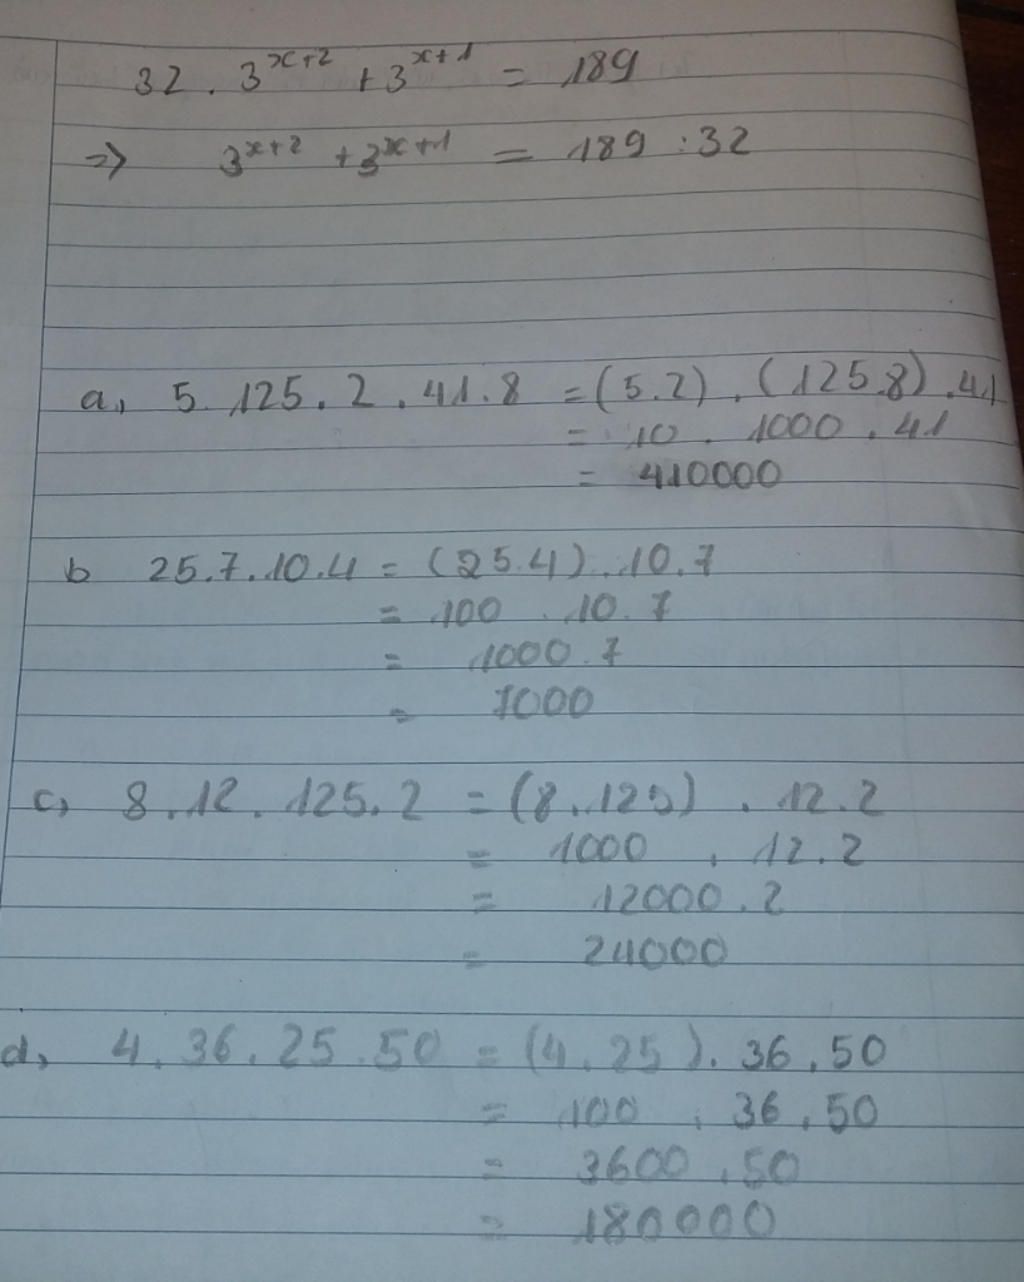 32 . 3^{x+2} + 3^{x+1} = 189
=> 3^{x+2} + 3^{x+1} = 189 : 32
a, 5.125.2.41.8 = (5.2).(125.8).41
= 10 . 1000 . 41
= 410000
b 25.7.10.4 = (25.4).10.7
= 100 . 10.7
= 1000.7
= 7000
c, 8.12.125.2 = (8.125).12.2
= 1000 . 12.2
= 12000.2
= 24000
d, 4.36.25.50 = (4.25).36.50
= 100 . 36.50
= 3600.50
= 180000